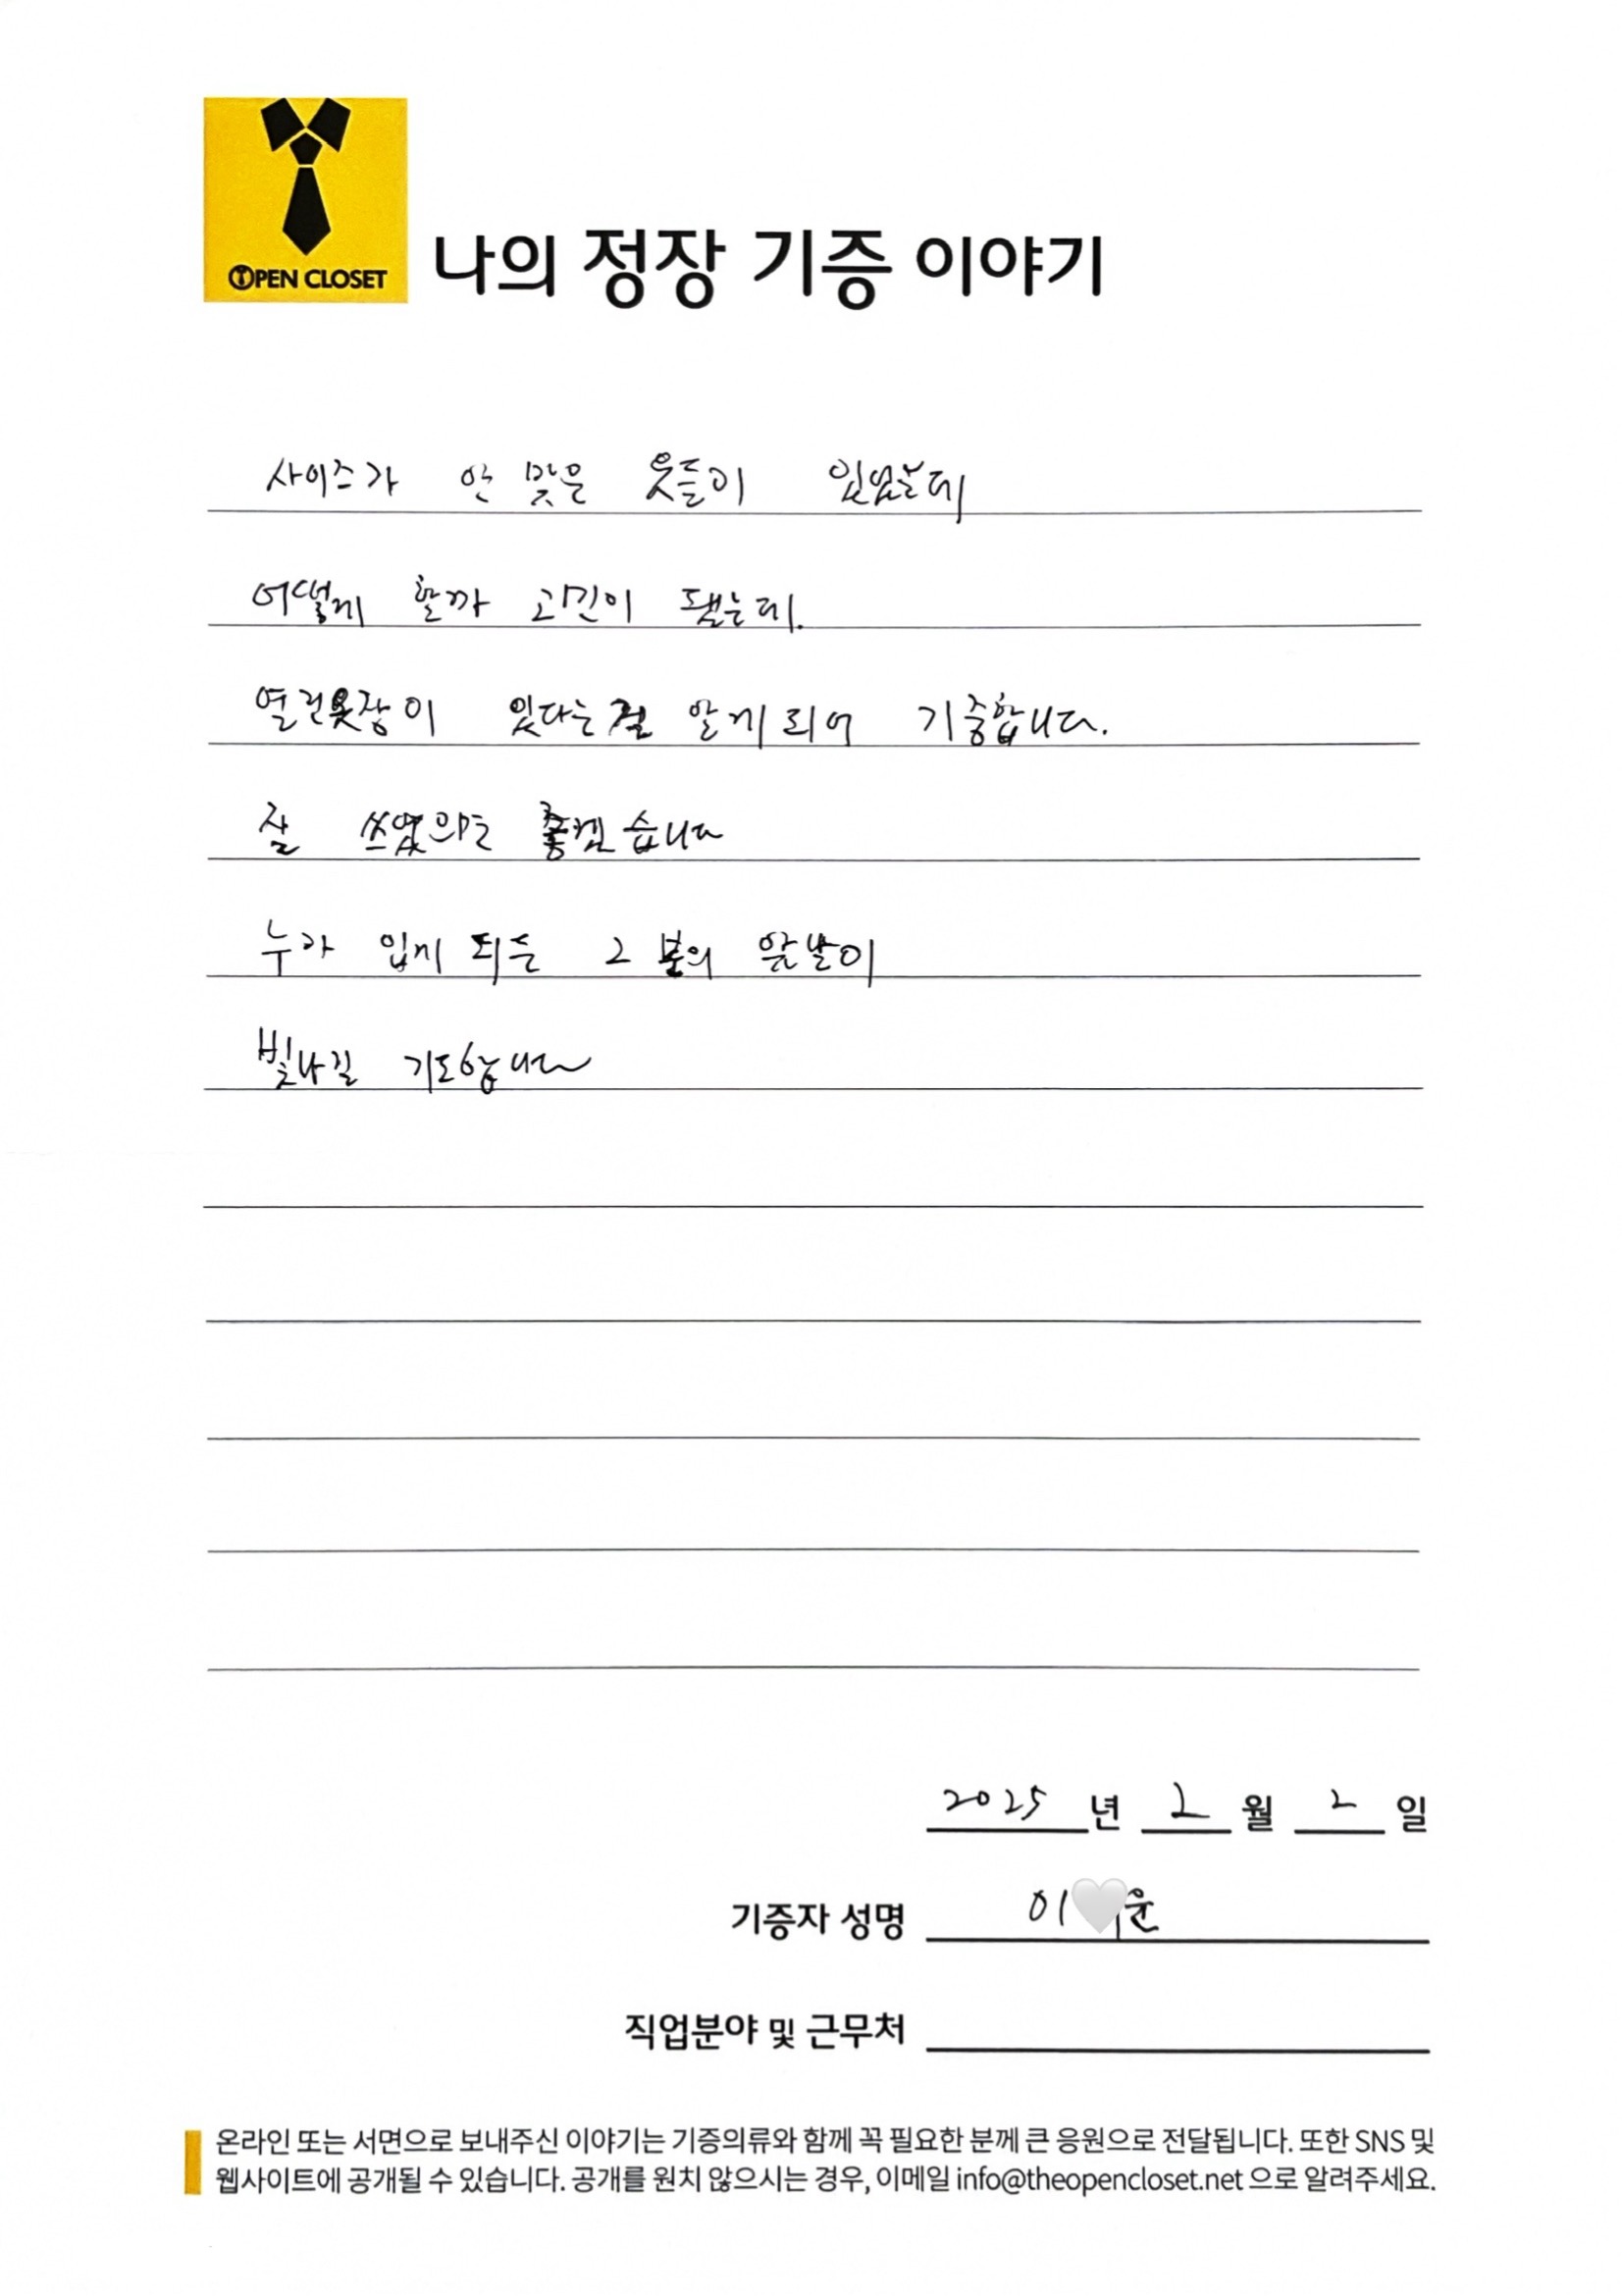 OPEN CLOSET
나의 정장 기증 이야기
사이즈가 안 맞은 옷들이 있었는데
어떻게 할까 고민이 됐는데.
열린옷장이 있다는걸 알게 되어 기증합니다.
잘 쓰였으면 좋겠습니다
누가 입게 되든 그 분의 앞날이
빛나길 기도합니다
2025 년 2 월 2 일
기증자 성명 이 윤
직업분야 및 근무처
온라인 또는 서면으로 보내주신 이야기는 기증의류와 함께 꼭 필요한 분께 큰 응원으로 전달됩니다. 또한 SNS 및
웹사이트에 공개될 수 있습니다. 공개를 원치 않으시는 경우, 이메일 info@theopencloset.net 으로 알려주세요.